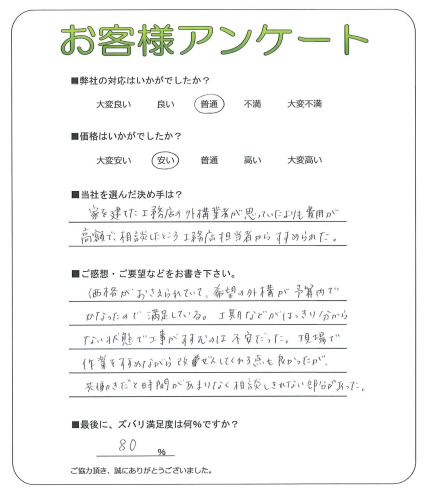 お客様アンケート
■弊社の対応はいかがでしたか？
大変良い 良い 普通 不満 大変不満
■価格はいかがでしたか？
大変安い 安い 普通 高い 大変高い
■当社を選んだ決め手は？
家を建てた工務店の外構業者が思っていたよりも費用が
高額で、相談したところ工務店担当者からすすめられた。
■ご感想・ご要望などをお書き下さい。
価格がおさえられていて、希望の外構が予算内で
かなったので満足している。工期などがはっきり分から
ない状態で工事がすすむのは不安だった。現場で
作業をすすめながら改善してくれる点も良かったが、
共働きだと時間があまりなく相談しきれない部分があった。
■最後に、ズバリ満足度は何％ですか？
80 ％
ご協力頂き、誠にありがとうございました。